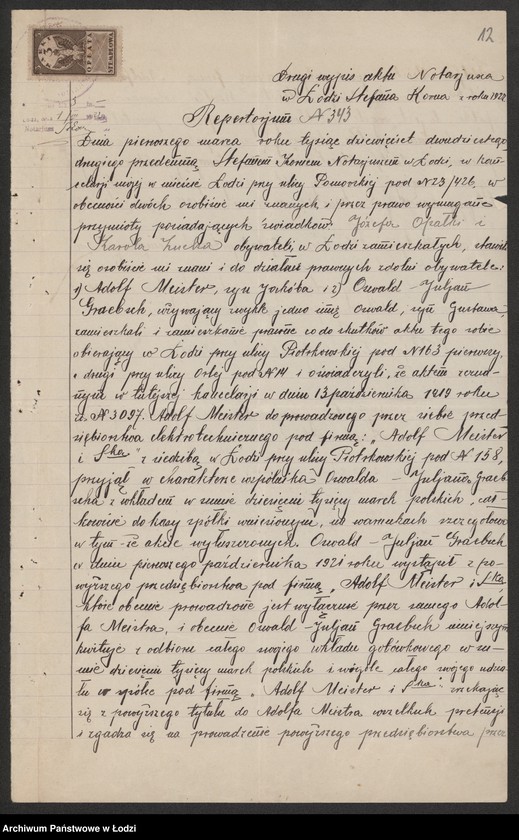 12
OPŁATA
STEMPLOWA
Drugi wypis aktu Notarjusza
w Łodzi Stefana Korna z roku 1922
Repertorjum № 343
Dnia pierwszego marca roku tysiąc dziewięćset dwudziestego
drugiego przedemną Stefanem Kornem Notarjuszem w Łodzi, w kan-
celarji mojej w mieście Łodzi przy ulicy Pomorskiej pod № 23/426, w
obecności dwóch osobiście mi znanych i przez prawo wymagane
przymioty posiadających świadków Józefa Opałki i
Karola obywateli, w Łodzi zamieszkałych, stawili
się osobiście mi znani i do działań prawnych zdolni obywatele:
1) Adolf Meister, syn Jakóba i 2) Oswald Juljan
Graebsch, używający zwykle jedno imię Oswald, syn Gustawa,
zamieszkali i zamieszkanie prawne co do skutków aktu tego sobie
obierający w Łodzi przy ulicy Piotrkowskiej pod № 163 pierwszy,
a drugi przy ulicy Orlej pod № 14 i oświadczyli, że aktem zezna-
nym w tutejszej kancelarji w dniu 13 października 1919 roku
za № 3097. Adolf Meister do prowadzonego przez siebie przed-
siębiorstwa elektrotechnicznego pod firmą: „Adolf Meister
i S-ka" z siedzibą w Łodzi przy ulicy Piotrkowskiej pod № 158,
przyjął w charakterze wspólnika Oswalda-Juljana Graeb-
scha z wkładem w sumie dziesięciu tysięcy marek polskich, cał-
kowicie do kasy spółki wniesionym, na warunkach szczegółowo
w tym-że akcie wyłuszczonych. Oswald-Juljan Graebsch
w dniu pierwszego października 1921 roku wystąpił z po-
wyższego przedsiębiorstwa pod firmą „Adolf Meister i S-ka
które obecnie prowadzone jest wyłącznie przez samego Adol-
fa Meistra, i obecnie Oswald-Juljan Graebsch niniejszym
kwituje z odbioru całego swojego wkładu gotówkowego w su-
mie dziesięciu tysięcy marek polskich i wogóle całego swojego udzia-
łu w spółce pod firmą „Adolf Meister i S-ka" zrzekając
się z powyższego tytułu do Adolfa Meistra wszelkich pretensji
i zgadza się na prowadzenie powyższego przedsiębiorstwa przez
Archiwum Państwowe w Łodzi